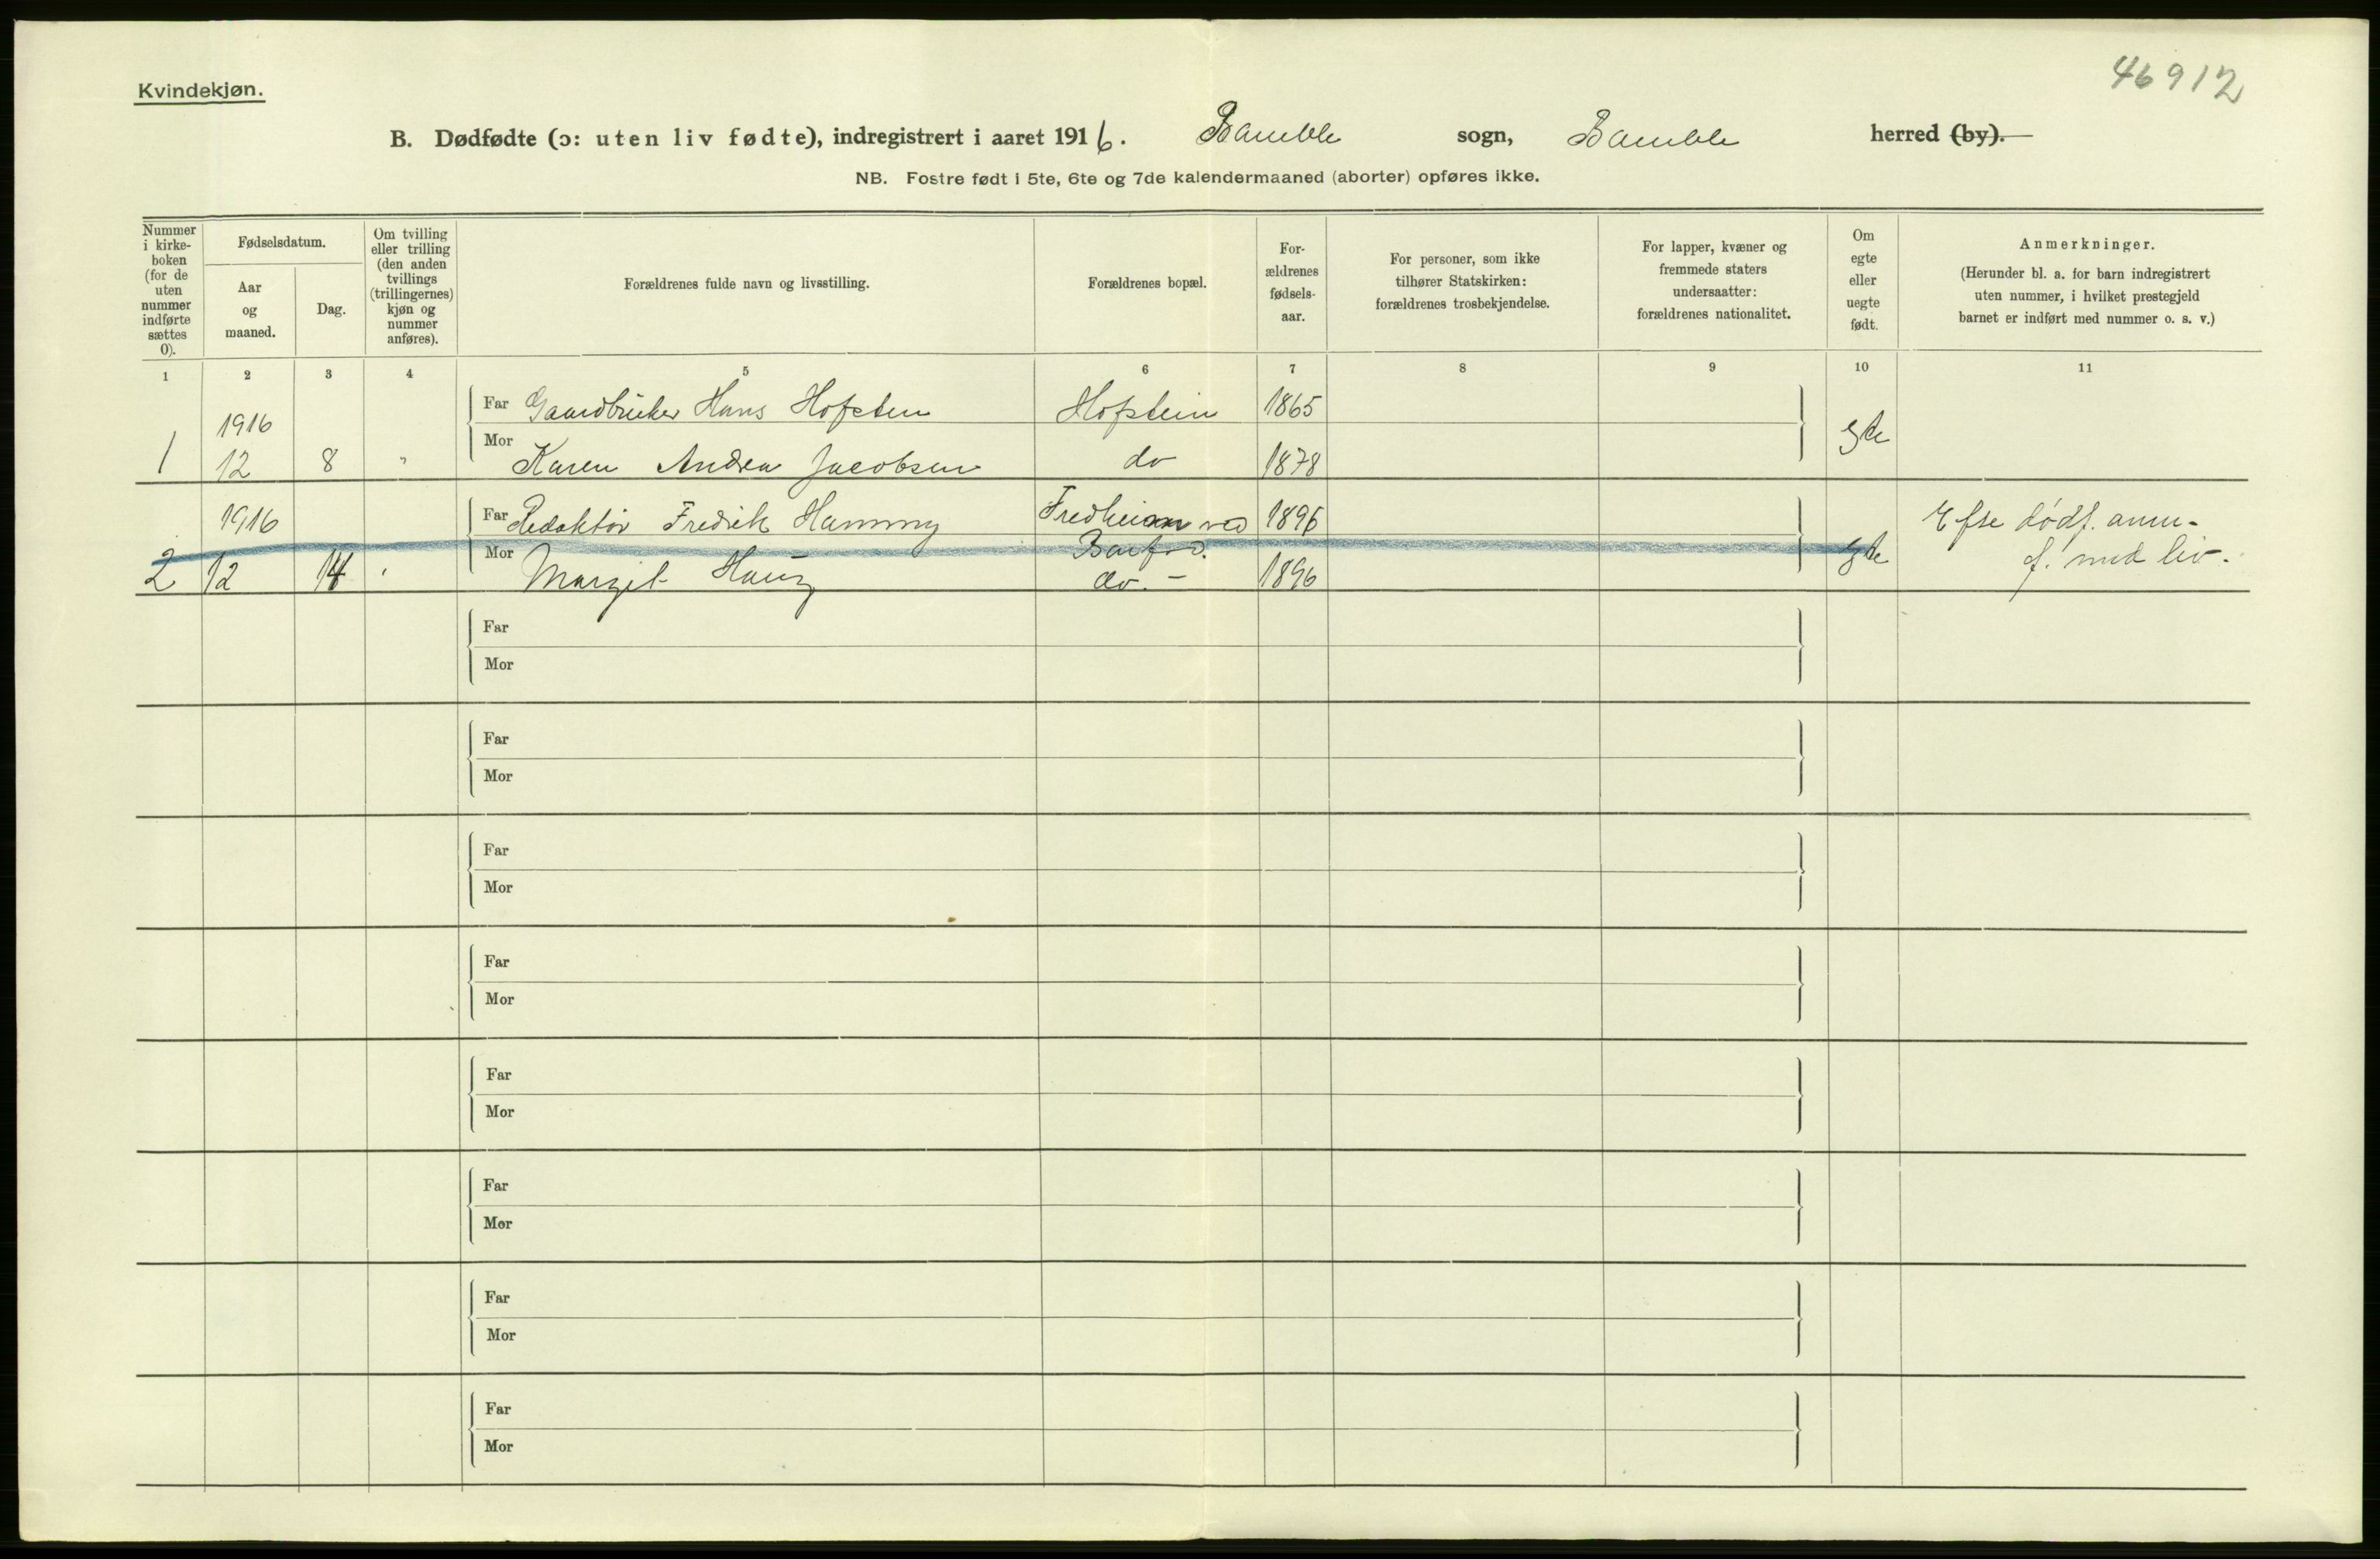 46912
Kvindekjøn.
B. Dødfødte (ɔ: uten liv fødte), indregistrert i aaret 1916. Bamble sogn, Bamble herred (by).
NB. Fostre født i 5te, 6te og 7de kalendermaaned (aborter) opføres ikke.
Nummer
i kirke-
boken
(for de
uten
nummer
indførte
sættes
0).
Fødselsdatum.
Aar
og
maaned.
Dag.
Om tvilling
eller trilling
(den anden
tvillings
(trillingernes)
kjøn og
nummer
anføres).
Forældrenes fulde navn og livsstilling.
Forældrenes bopæl.
For-
ældrenes
fødsels-
aar.
For personer, som ikke
tilhører Statskirken:
forældrenes trosbekjendelse.
For lapper, kvæner og
fremmede staters
undersaatter:
forældrenes nationalitet.
Om
egte
eller
uegte
født.
Anmerkninger.
(Herunder bl. a. for barn indregistrert
uten nummer, i hvilket prestegjeld
barnet er indført med nummer o. s. v.)
1 2 3 4 5 6 7 8 9 10 11
Far Gaardbruker Hans Hofsten Hofstein 1865
1916 egte
1 12 8 " Mor Karen Andrea Jacobsen do 1878
1916 Far Redaktør Fredrik Fredheim ved 1896 Efter dødf. anm-
egte f. med liv.
2 12 14 Mor Margit Haug do. - 1896
Far
Mor
Far
Mor
Far
Mor
Far
Mor
Far
Mor
Far
Mor
Far
Mor
Far
Mor